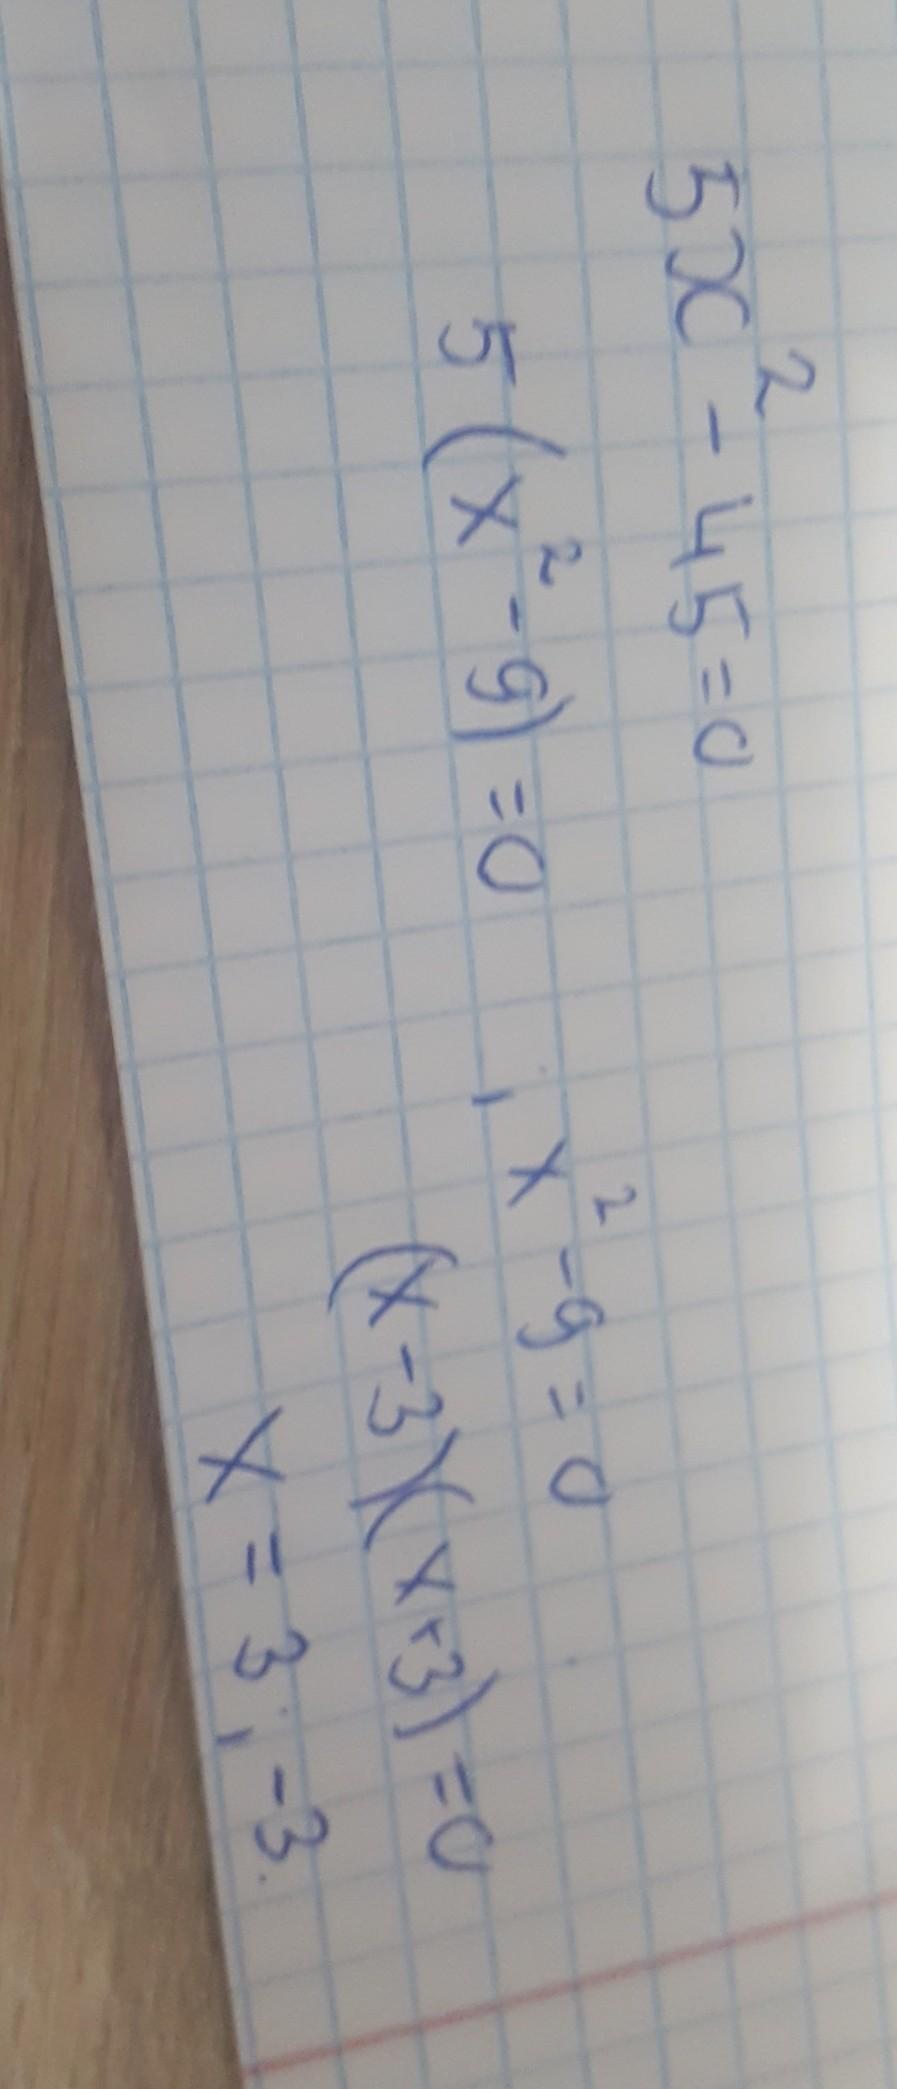 5x² - 45 = 0
5(x² - 9) = 0 ; x² - 9 = 0
(x - 3)(x + 3) = 0
x = 3 ; -3.